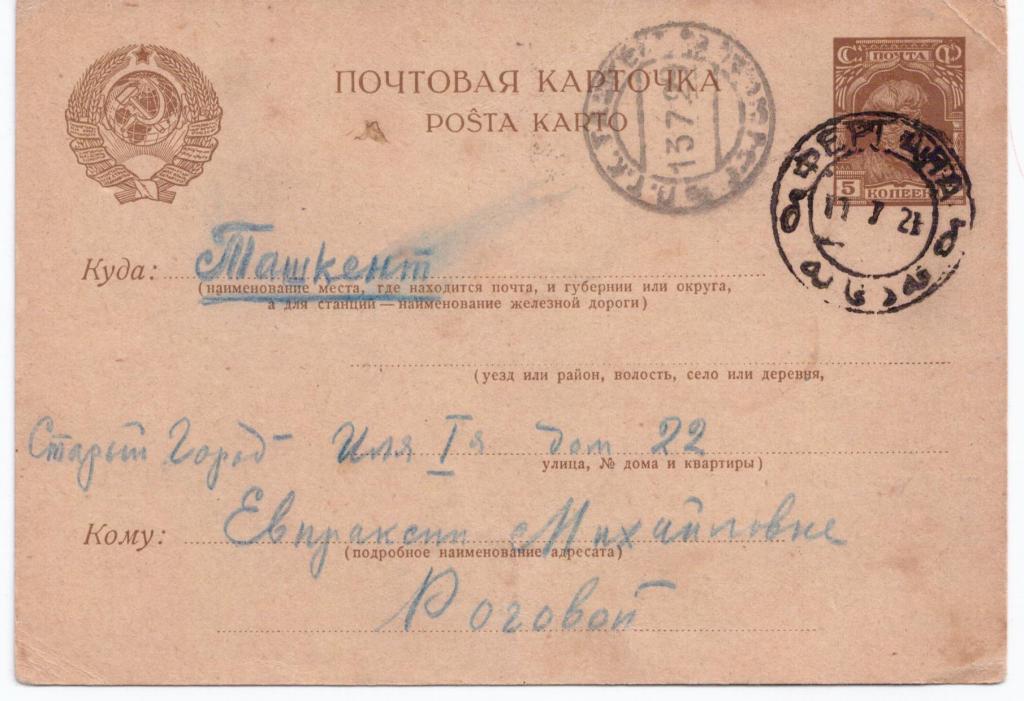 ПОЧТОВАЯ КАРТОЧКА
POŜTA KARTO
С ПОЧТА Ф
5 КОПЕЕК
13 7 2
ФЕРГАНА
Куда: Ташкент
(наименование места, где находится почта, и губернии или округа,
а для станции — наименование железной дороги)
(уезд или район, волость, село или деревня,
Старый Город Иля Iя дом 22
улица, № дома и квартиры)
Кому: Евпраксии Михайловне
(подробное наименование адресата)
Роговой